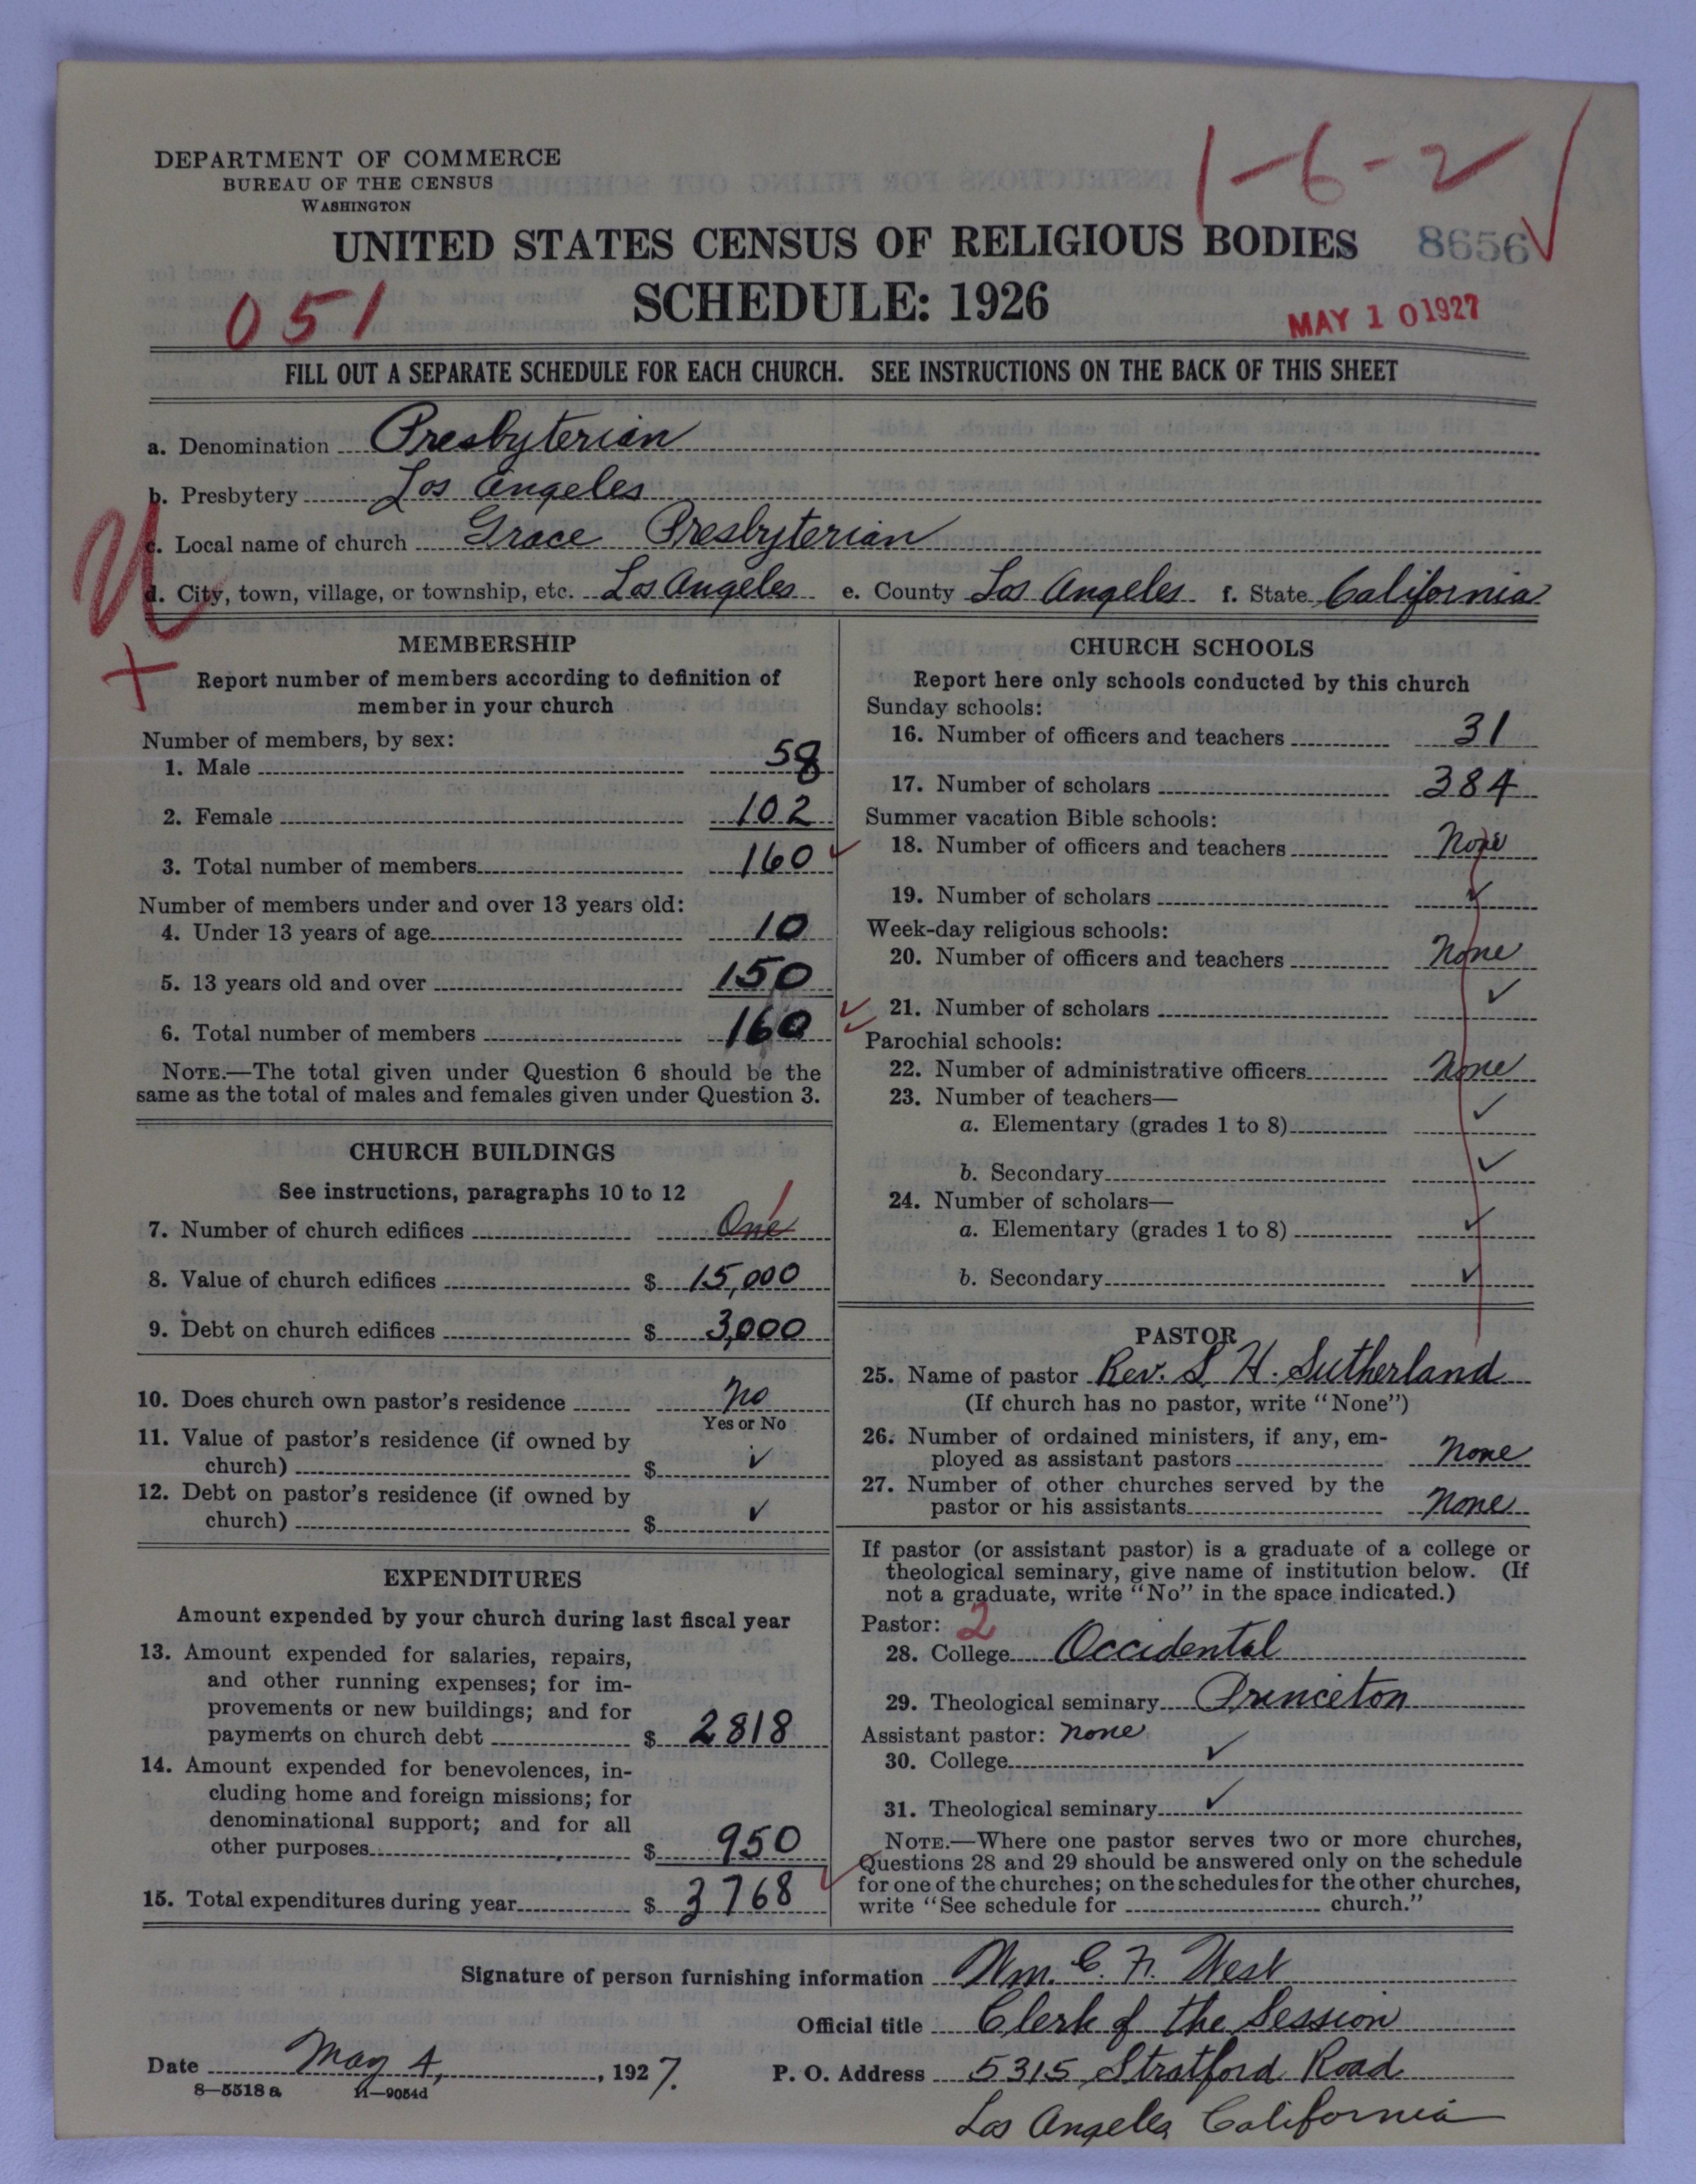 DEPARTMENT OF COMMERCE
BUREAU OF THE CENSUS
WASHINGTON
1-6-2
UNITED STATES CENSUS OF RELIGIOUS BODIES
8656
SCHEDULE: 1926
051
MAY 10 1927
FILL OUT A SEPARATE SCHEDULE FOR EACH CHURCH. SEE INSTRUCTIONS ON THE BACK OF THIS SHEET
a. Denomination Presbyterian
b. Presbytery Los Angeles
c. Local name of church Grace Presbyterian
d. City, town, village, or township, etc. Los Angeles e. County Los Angeles f. State California
MEMBERSHIP
Report number of members according to definition of
member in your church
Number of members, by sex:
1. Male 58
2. Female 102
3. Total number of members 160
Number of members under and over 13 years old:
4. Under 13 years of age 10
5. 13 years old and over 150
6. Total number of members 160
NOTE.—The total given under Question 6 should be the
same as the total of males and females given under Question 3.
CHURCH BUILDINGS
See instructions, paragraphs 10 to 12
7. Number of church edifices One 1
8. Value of church edifices $ 15,000
9. Debt on church edifices $ 3,000
10. Does church own pastor's residence No
Yes or No
11. Value of pastor's residence (if owned by
church) $ ✓
12. Debt on pastor's residence (if owned by
church) $ ✓
EXPENDITURES
Amount expended by your church during last fiscal year
13. Amount expended for salaries, repairs,
and other running expenses; for im-
provements or new buildings; and for
payments on church debt $ 2818
14. Amount expended for benevolences, in-
cluding home and foreign missions; for
denominational support; and for all
other purposes $ 950
15. Total expenditures during year $ 3768
CHURCH SCHOOLS
Report here only schools conducted by this church
Sunday schools:
16. Number of officers and teachers 31
17. Number of scholars 384
Summer vacation Bible schools:
18. Number of officers and teachers None
19. Number of scholars ✓
Week-day religious schools:
20. Number of officers and teachers None
21. Number of scholars ✓
Parochial schools:
22. Number of administrative officers None
23. Number of teachers—
a. Elementary (grades 1 to 8) ✓
b. Secondary ✓
24. Number of scholars—
a. Elementary (grades 1 to 8) ✓
b. Secondary ✓
PASTOR
25. Name of pastor Rev. S. H. Sutherland
(If church has no pastor, write "None")
26. Number of ordained ministers, if any, em-
ployed as assistant pastors None
27. Number of other churches served by the
pastor or his assistants None
If pastor (or assistant pastor) is a graduate of a college or
theological seminary, give name of institution below. (If
not a graduate, write "No" in the space indicated.)
Pastor: 2
28. College Occidental
29. Theological seminary Princeton
Assistant pastor: None
30. College ✓
31. Theological seminary ✓
NOTE.—Where one pastor serves two or more churches,
Questions 28 and 29 should be answered only on the schedule
for one of the churches; on the schedules for the other churches,
write "See schedule for church."
Signature of person furnishing information Wm. C. F. West
Official title Clerk of the Session
Date May 4, 1927.
P. O. Address 5315 Stratford Road
8—5518 a 11—9054d
Los Angeles California